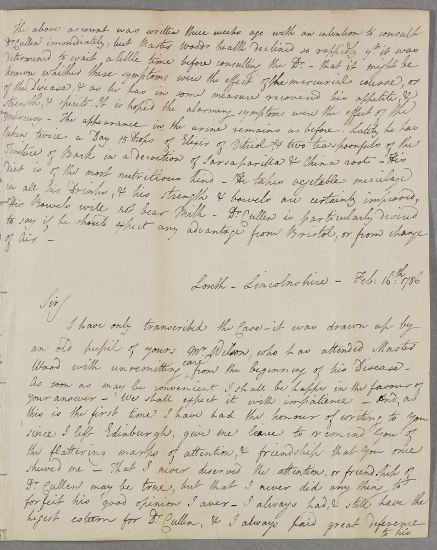 The above account was written three weeks ago with an intention to consult
Dr Cullen immediately, but Master Woods health declined so rappidly yt it was
determind to wait a little time before consulting the Dr - that it might be
known whether these symptoms were the effect of the mercurial course, or
of the Disease, & as he has in some measure recovered his appetite, &
strength, & spirits. It is hoped the alarming symptoms were the effect of the
mercury - The appearance in the urine remains as before. Lately he has
taken twice a Day 15 drops of Elixer of Vitriol & two tea spoonfuls of the
Tincture of Bark in a decoction of Sarsaparilla & China root - His
diet is of the most nutritious kind - He takes vegetable mucilage
in all his Drinks, & his strength & bowels are certainly improved,
His Bowels will not bear Milk - Dr Cullen is particularly desired
to say if he should expect any advantage from Bristol, or from change
of Air -
Louth - Lincolnshire - Feb: 16.th 1786
Sir/
I have only transcribed the Case - it was drawn up by
an old pupil of yours Mr Wilson, who has attended Master
Wood with unremitting care from the beginning of his Disease -
As soon as may be convenient I shall be happy in the favour of
your answer - We shall expect it with impatience - And, as
this is the first time I have had the honour of writing to you
since I left Edinburgh, give me leave to remind you of
the flattering marks of attention, & friendship that you once
shewed me - That I never deserved the attention, or friendship of
Dr Cullen may be true, but that I never did any thing to
forfeit his good opinion I aver - I always had, & still have the
higest esteem for Dr Cullen, & I always paid great deference
to his